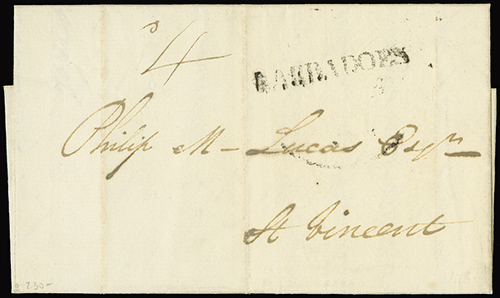 4
BARBADOES
Philip M— Lucas Esqr
St Vincent